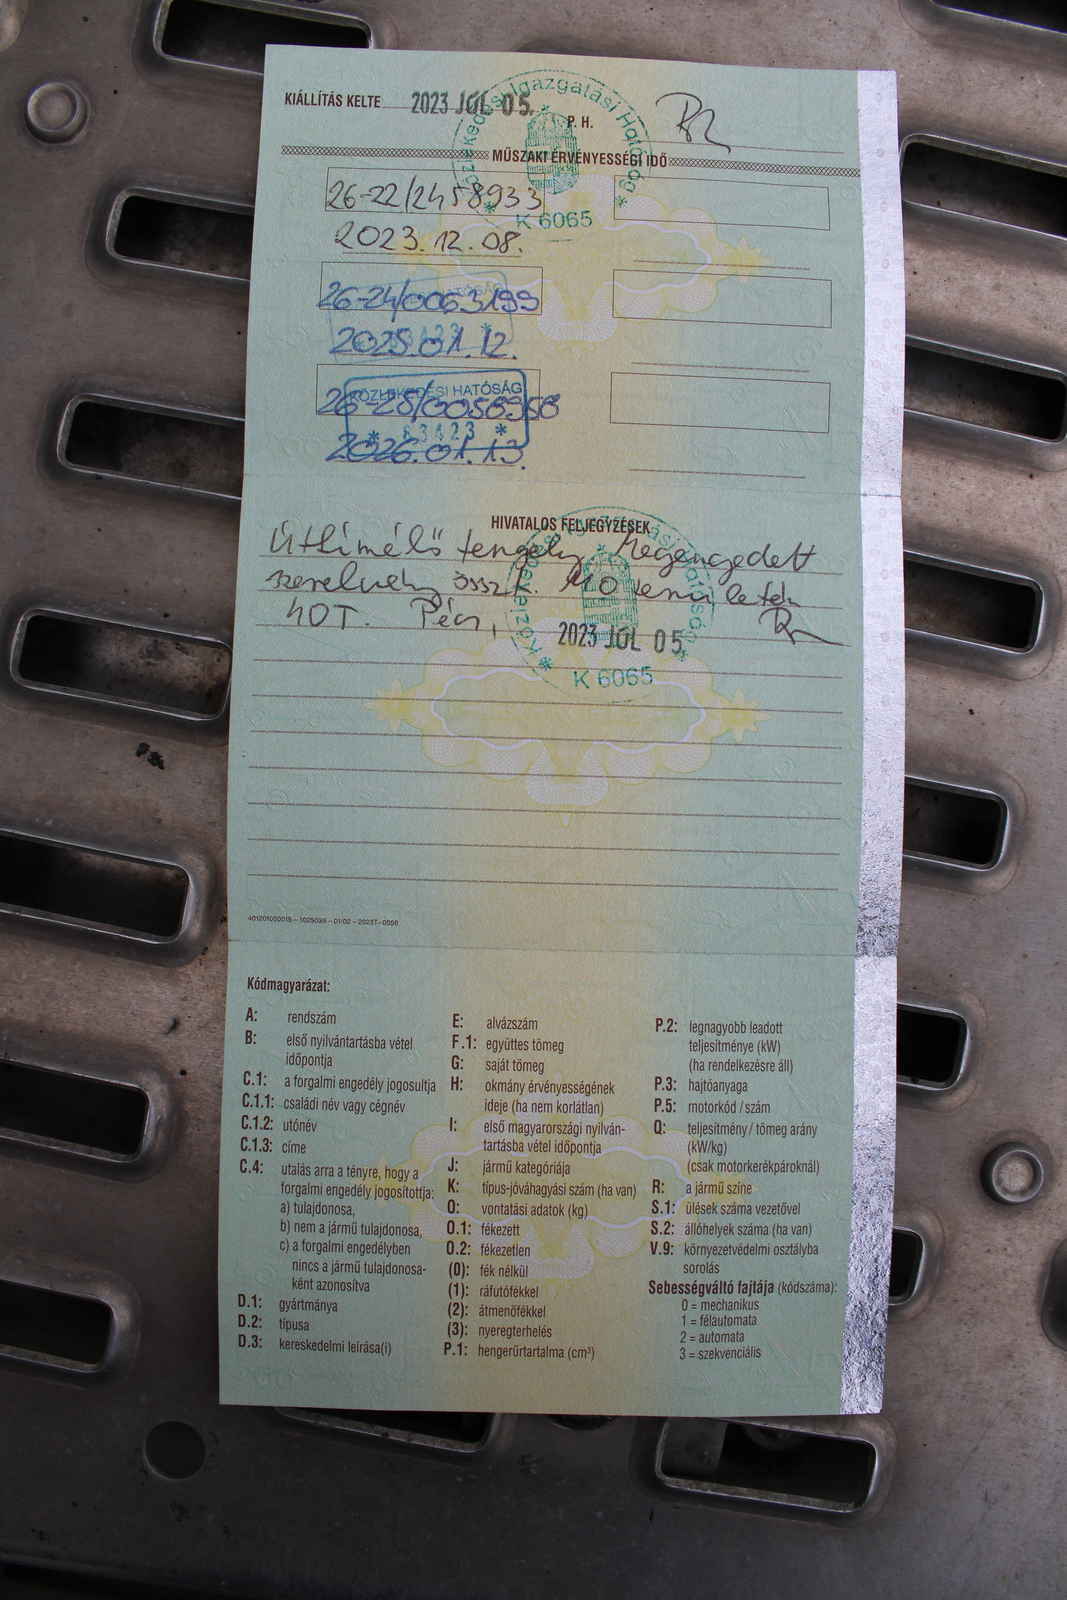 KIÁLLÍTÁS KELTE 2023 JÚL 05.
P. H.
Közlekedési Igazgatási Hatóság
* K 6065 *
MŰSZAKI ÉRVÉNYESSÉGI IDŐ
26-22/2458933
2023.12.08.
26-24/0063199
2025.01.12.
KÖZLEKEDÉSI HATÓSÁG
26-25/0058958
* 63423 *
2026.01.13.
HIVATALOS FELJEGYZÉSEK
Útkímélő tengely Megengedett
szerelvény össz t. M0
40T. Pécs,
Közlekedési Igazgatási Hatóság
2023 JÚL 05.
* K 6065 *
401201000015 – 1025099 – 01/02 – 2023T–0056
Kódmagyarázat:
A: rendszám
B: első nyilvántartásba vétel
időpontja
C.1: a forgalmi engedély jogosultja
C.1.1: családi név vagy cégnév
C.1.2: utónév
C.1.3: címe
C.4: utalás arra a tényre, hogy a
forgalmi engedély jogosítottja:
a) tulajdonosa,
b) nem a jármű tulajdonosa,
c) a forgalmi engedélyben
nincs a jármű tulajdonosa-
ként azonosítva
D.1: gyártmánya
D.2: típusa
D.3: kereskedelmi leírása(i)
E: alvázszám
F.1: együttes tömeg
G: saját tömeg
H: okmány érvényességének
ideje (ha nem korlátlan)
I: első magyarországi nyilván-
tartásba vétel időpontja
J: jármű kategóriája
K: típus-jóváhagyási szám (ha van)
O: vontatási adatok (kg)
O.1: fékezett
O.2: fékezetlen
(0): fék nélkül
(1): ráfutófékkel
(2): átmenőfékkel
(3): nyeregterhelés
P.1: hengerűrtartalma (cm³)
P.2: legnagyobb leadott
teljesítménye (kW)
(ha rendelkezésre áll)
P.3: hajtóanyaga
P.5: motorkód / szám
Q: teljesítmény / tömeg arány
(kW/kg)
(csak motorkerékpároknál)
R: a jármű színe
S.1: ülések száma vezetővel
S.2: állóhelyek száma (ha van)
V.9: környezetvédelmi osztályba
sorolás
Sebességváltó fajtája (kódszáma):
0 = mechanikus
1 = félautomata
2 = automata
3 = szekvenciális